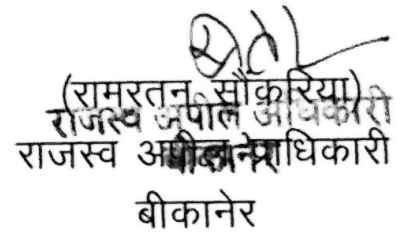 (रामरतन सौंकरिया)
राजस्व अपील अधिकारी
राजस्व अपील प्राधिकारी
बीकानेर